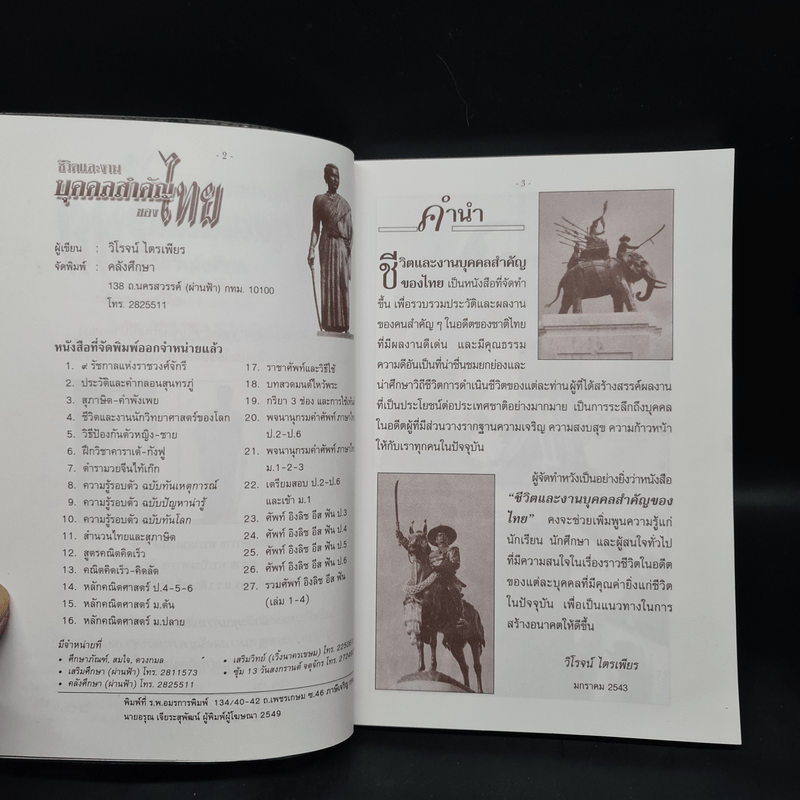 - 2 -
ชีวิตและงาน
บุคคลสำคัญ
ของไทย
ผู้เขียน : วิโรจน์ ไตรเพียร
จัดพิมพ์ : คลังศึกษา
138 ถ.นครสวรรค์ (ผ่านฟ้า) กทม. 10100
โทร. 2825511
หนังสือที่จัดพิมพ์ออกจำหน่ายแล้ว
1. ๙ รัชกาลแห่งราชวงศ์จักรี
2. ประวัติและคำกลอนสุนทรภู่
3. สุภาษิต-คำพังเพย
4. ชีวิตและงานนักวิทยาศาสตร์ของโลก
5. วิธีป้องกันตัวหญิง-ชาย
6. ฝึกวิชาคาราเต้-กังฟู
7. ตำรามวยจีนไท้เก๊ก
8. ความรู้รอบตัว ฉบับทันเหตุการณ์
9. ความรู้รอบตัว ฉบับปัญหาน่ารู้
10. ความรู้รอบตัว ฉบับทันโลก
11. สำนวนไทยและสุภาษิต
12. สูตรคณิตคิดเร็ว
13. คณิตคิดเร็ว-คิดลัด
14. หลักคณิตศาสตร์ ป.4-5-6
15. หลักคณิตศาสตร์ ม.ต้น
16. หลักคณิตศาสตร์ ม.ปลาย
17. ราชาศัพท์และวิธีใช้
18. บทสวดมนต์ไหว้พระ
19. กริยา 3 ช่อง และการใช้
20. พจนานุกรมคำศัพท์
ป.2-ป.6
21. พจนานุกรมคำศัพท์
ม.1-2-3
22. เตรียมสอบ ป.2-ป.6
และเข้า ม.1
23. ศัพท์ อิงลิช อีส ฟัน ป.3
24. ศัพท์ อิงลิช อีส ฟัน ป.4
25. ศัพท์ อิงลิช อีส ฟัน ป.5
26. ศัพท์ อิงลิช อีส ฟัน ป.6
27. รวมศัพท์ อิงลิช อีส ฟัน
(เล่ม 1-4)
มีจำหน่ายที่
• ศึกษาภัณฑ์, สมใจ, ดวงกมล
• เสริมศึกษา (ผ่านฟ้า) โทร. 2811573
• คลังศึกษา (ผ่านฟ้า) โทร. 2825511
• เสริมวิทย์ (เวิ้งนาครเขษม) โทร.
• ซุ้ม 13 วันสงกรานต์ จตุจักร โทร.
พิมพ์ที่ ร.พ.อมรการพิมพ์ 134/40-42 ถ.เพชรเกษม ซ.46 ภาษีเจริญ
นายอรุณ เจียระสุพัฒน์ ผู้พิมพ์ผู้โฆษณา 2549
- 3 -
คำนำ
ชีวิตและงานบุคคลสำคัญ
ของไทย เป็นหนังสือที่จัดทำ
ขึ้น เพื่อรวบรวมประวัติและผลงาน
ของคนสำคัญ ๆ ในอดีตของชาติไทย
ที่มีผลงานดีเด่น และมีคุณธรรม
ความดีอันเป็นที่น่าชื่นชมยกย่องและ
น่าศึกษาวิถีชีวิตการดำเนินชีวิตของแต่ละท่านผู้ที่ได้สร้างสรรค์ผลงาน
ที่เป็นประโยชน์ต่อประเทศชาติอย่างมากมาย เป็นการระลึกถึงบุคคล
ในอดีตผู้ที่มีส่วนวางรากฐานความเจริญ ความสงบสุข ความก้าวหน้า
ให้กับเราทุกคนในปัจจุบัน
ผู้จัดทำหวังเป็นอย่างยิ่งว่าหนังสือ
"ชีวิตและงานบุคคลสำคัญของ
ไทย" คงจะช่วยเพิ่มพูนความรู้แก่
นักเรียน นักศึกษา และผู้สนใจทั่วไป
ที่มีความสนใจในเรื่องราวชีวิตในอดีต
ของแต่ละบุคคลที่มีคุณค่ายิ่งแก่ชีวิต
ในปัจจุบัน เพื่อเป็นแนวทางในการ
สร้างอนาคตให้ดีขึ้น
วิโรจน์ ไตรเพียร
มกราคม 2543